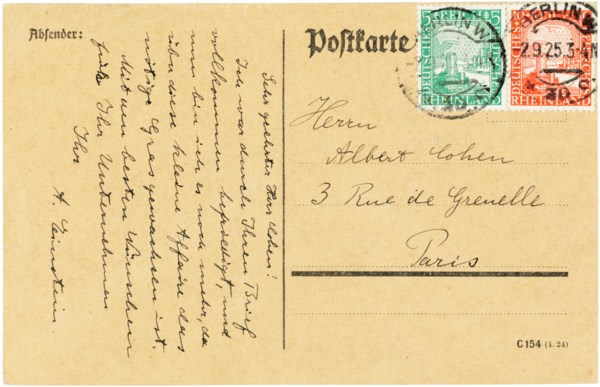 Absender:
Postkarte
Sehr geehrter Herr Cohen!
Ich war durch Ihren Brief
vollkommen befriedigt, und
nun bin ich es noch mehr, da
über diese kleine Affaire das
nötige Gras gewachsen ist.
Mit den besten Wünschen
für Ihr Unternehmen
Ihr
A. Einstein.
BERLIN W
5 5
DEUTSCHES
RHEINLAND
10
DEUTSCHES
RHEINLAN
BERLIN W
2.9.25.3-4N
* 30 c
Herrn
Albert Cohen
3 Rue de Grenelle
Paris
C 154 (4. 24)